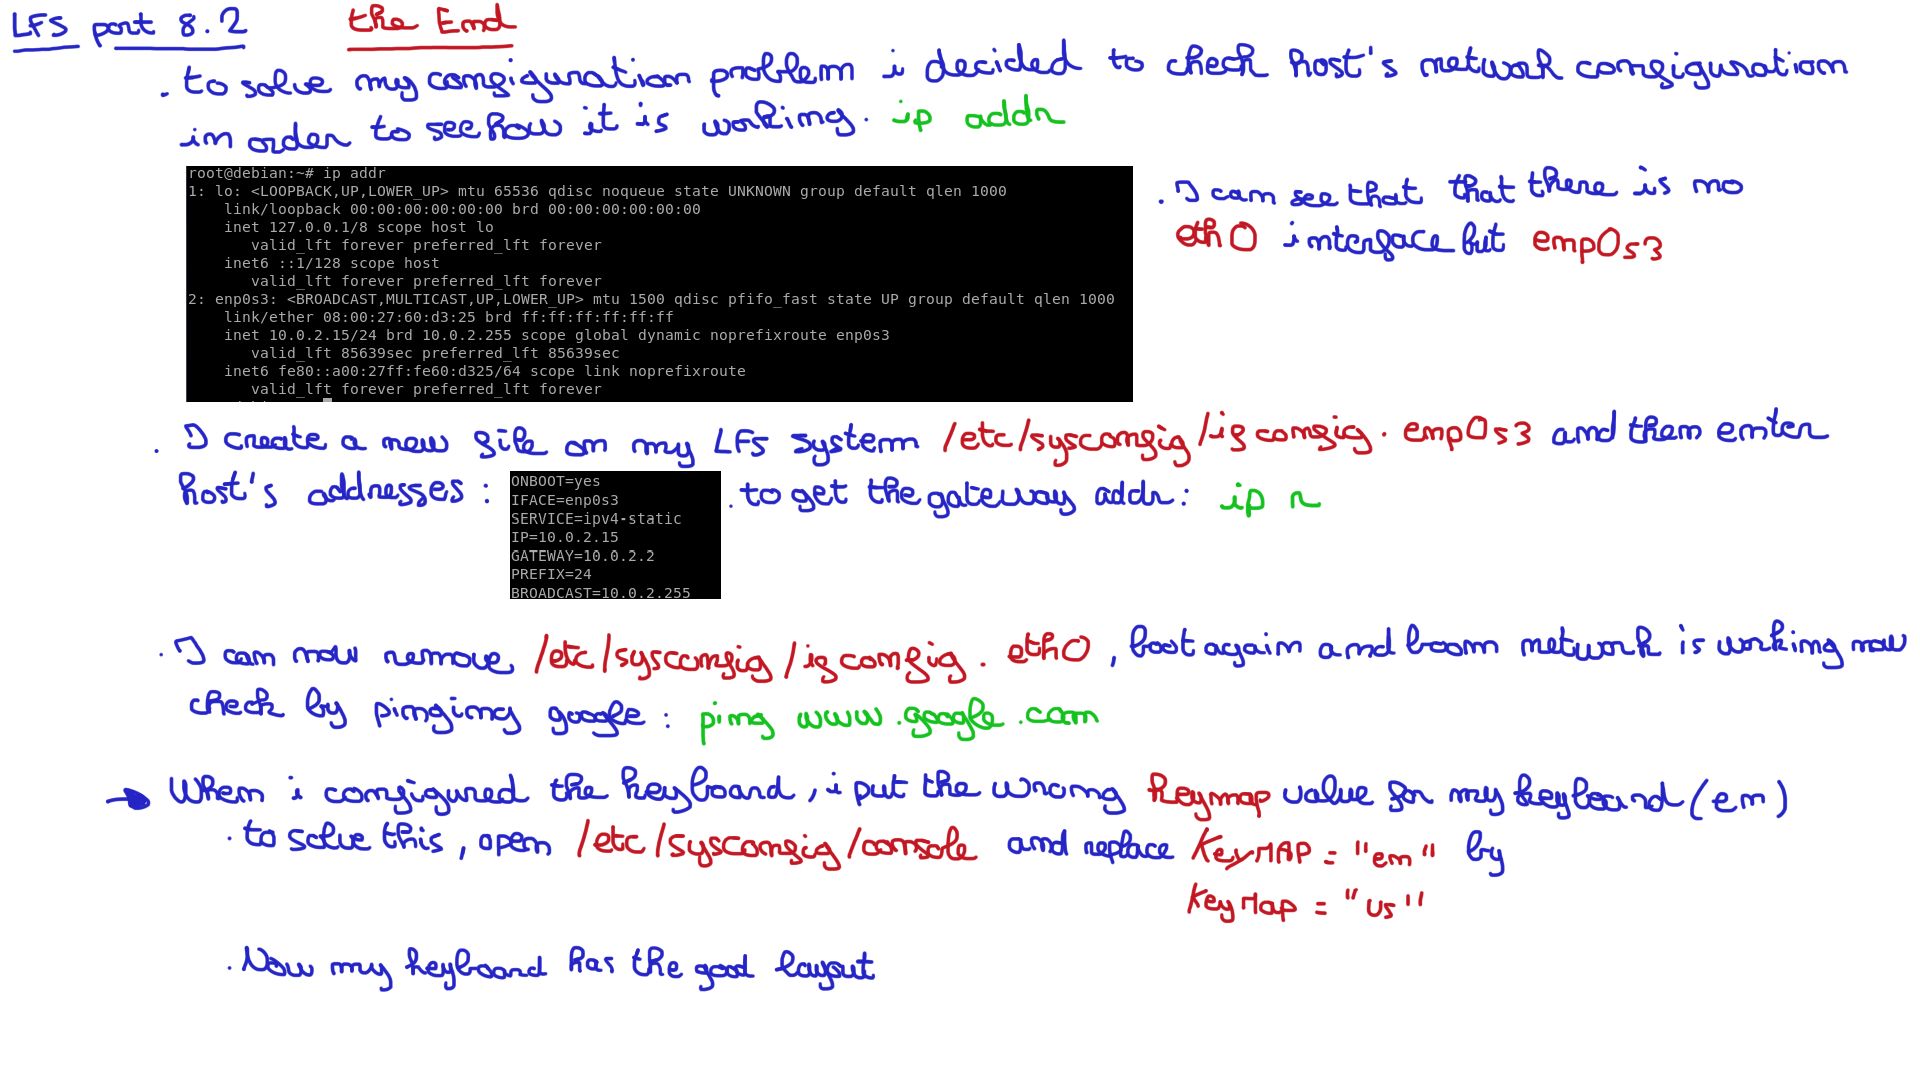 LFS part 8.2 the End
. to solve my configuration problem i decided to check host's network configuration
in order to see how it is working. ip addr
root@debian:~# ip addr
1: lo: <LOOPBACK,UP,LOWER_UP> mtu 65536 qdisc noqueue state UNKNOWN group default qlen 1000
link/loopback 00:00:00:00:00:00 brd 00:00:00:00:00:00
inet 127.0.0.1/8 scope host lo
valid_lft forever preferred_lft forever
inet6 ::1/128 scope host
valid_lft forever preferred_lft forever
2: enp0s3: <BROADCAST,MULTICAST,UP,LOWER_UP> mtu 1500 qdisc pfifo_fast state UP group default qlen 1000
link/ether 08:00:27:60:d3:25 brd ff:ff:ff:ff:ff:ff
inet 10.0.2.15/24 brd 10.0.2.255 scope global dynamic noprefixroute enp0s3
valid_lft 85639sec preferred_lft 85639sec
inet6 fe80::a00:27ff:fe60:d325/64 scope link noprefixroute
valid_lft forever preferred_lft forever
. I can see that that there is no
eth0 interface but enp0s3
. I create a new file on my LFS system /etc/sysconfig/ifconfig.enp0s3 and then enter
host's addresses :
ONBOOT=yes
IFACE=enp0s3
SERVICE=ipv4-static
IP=10.0.2.15
GATEWAY=10.0.2.2
PREFIX=24
BROADCAST=10.0.2.255
. to get the gateway addr: ip r
. I can now remove /etc/sysconfig/ifconfig.eth0, boot again and boom network is working now
check by pinging google : ping www.google.com
→ When i configured the keyboard, i put the wrong keymap value for my keyboard (en)
. to solve this, open /etc/sysconfig/console and replace KeyMAP = "en" by
KeyMap = "us"
. Now my keyboard has the good layout